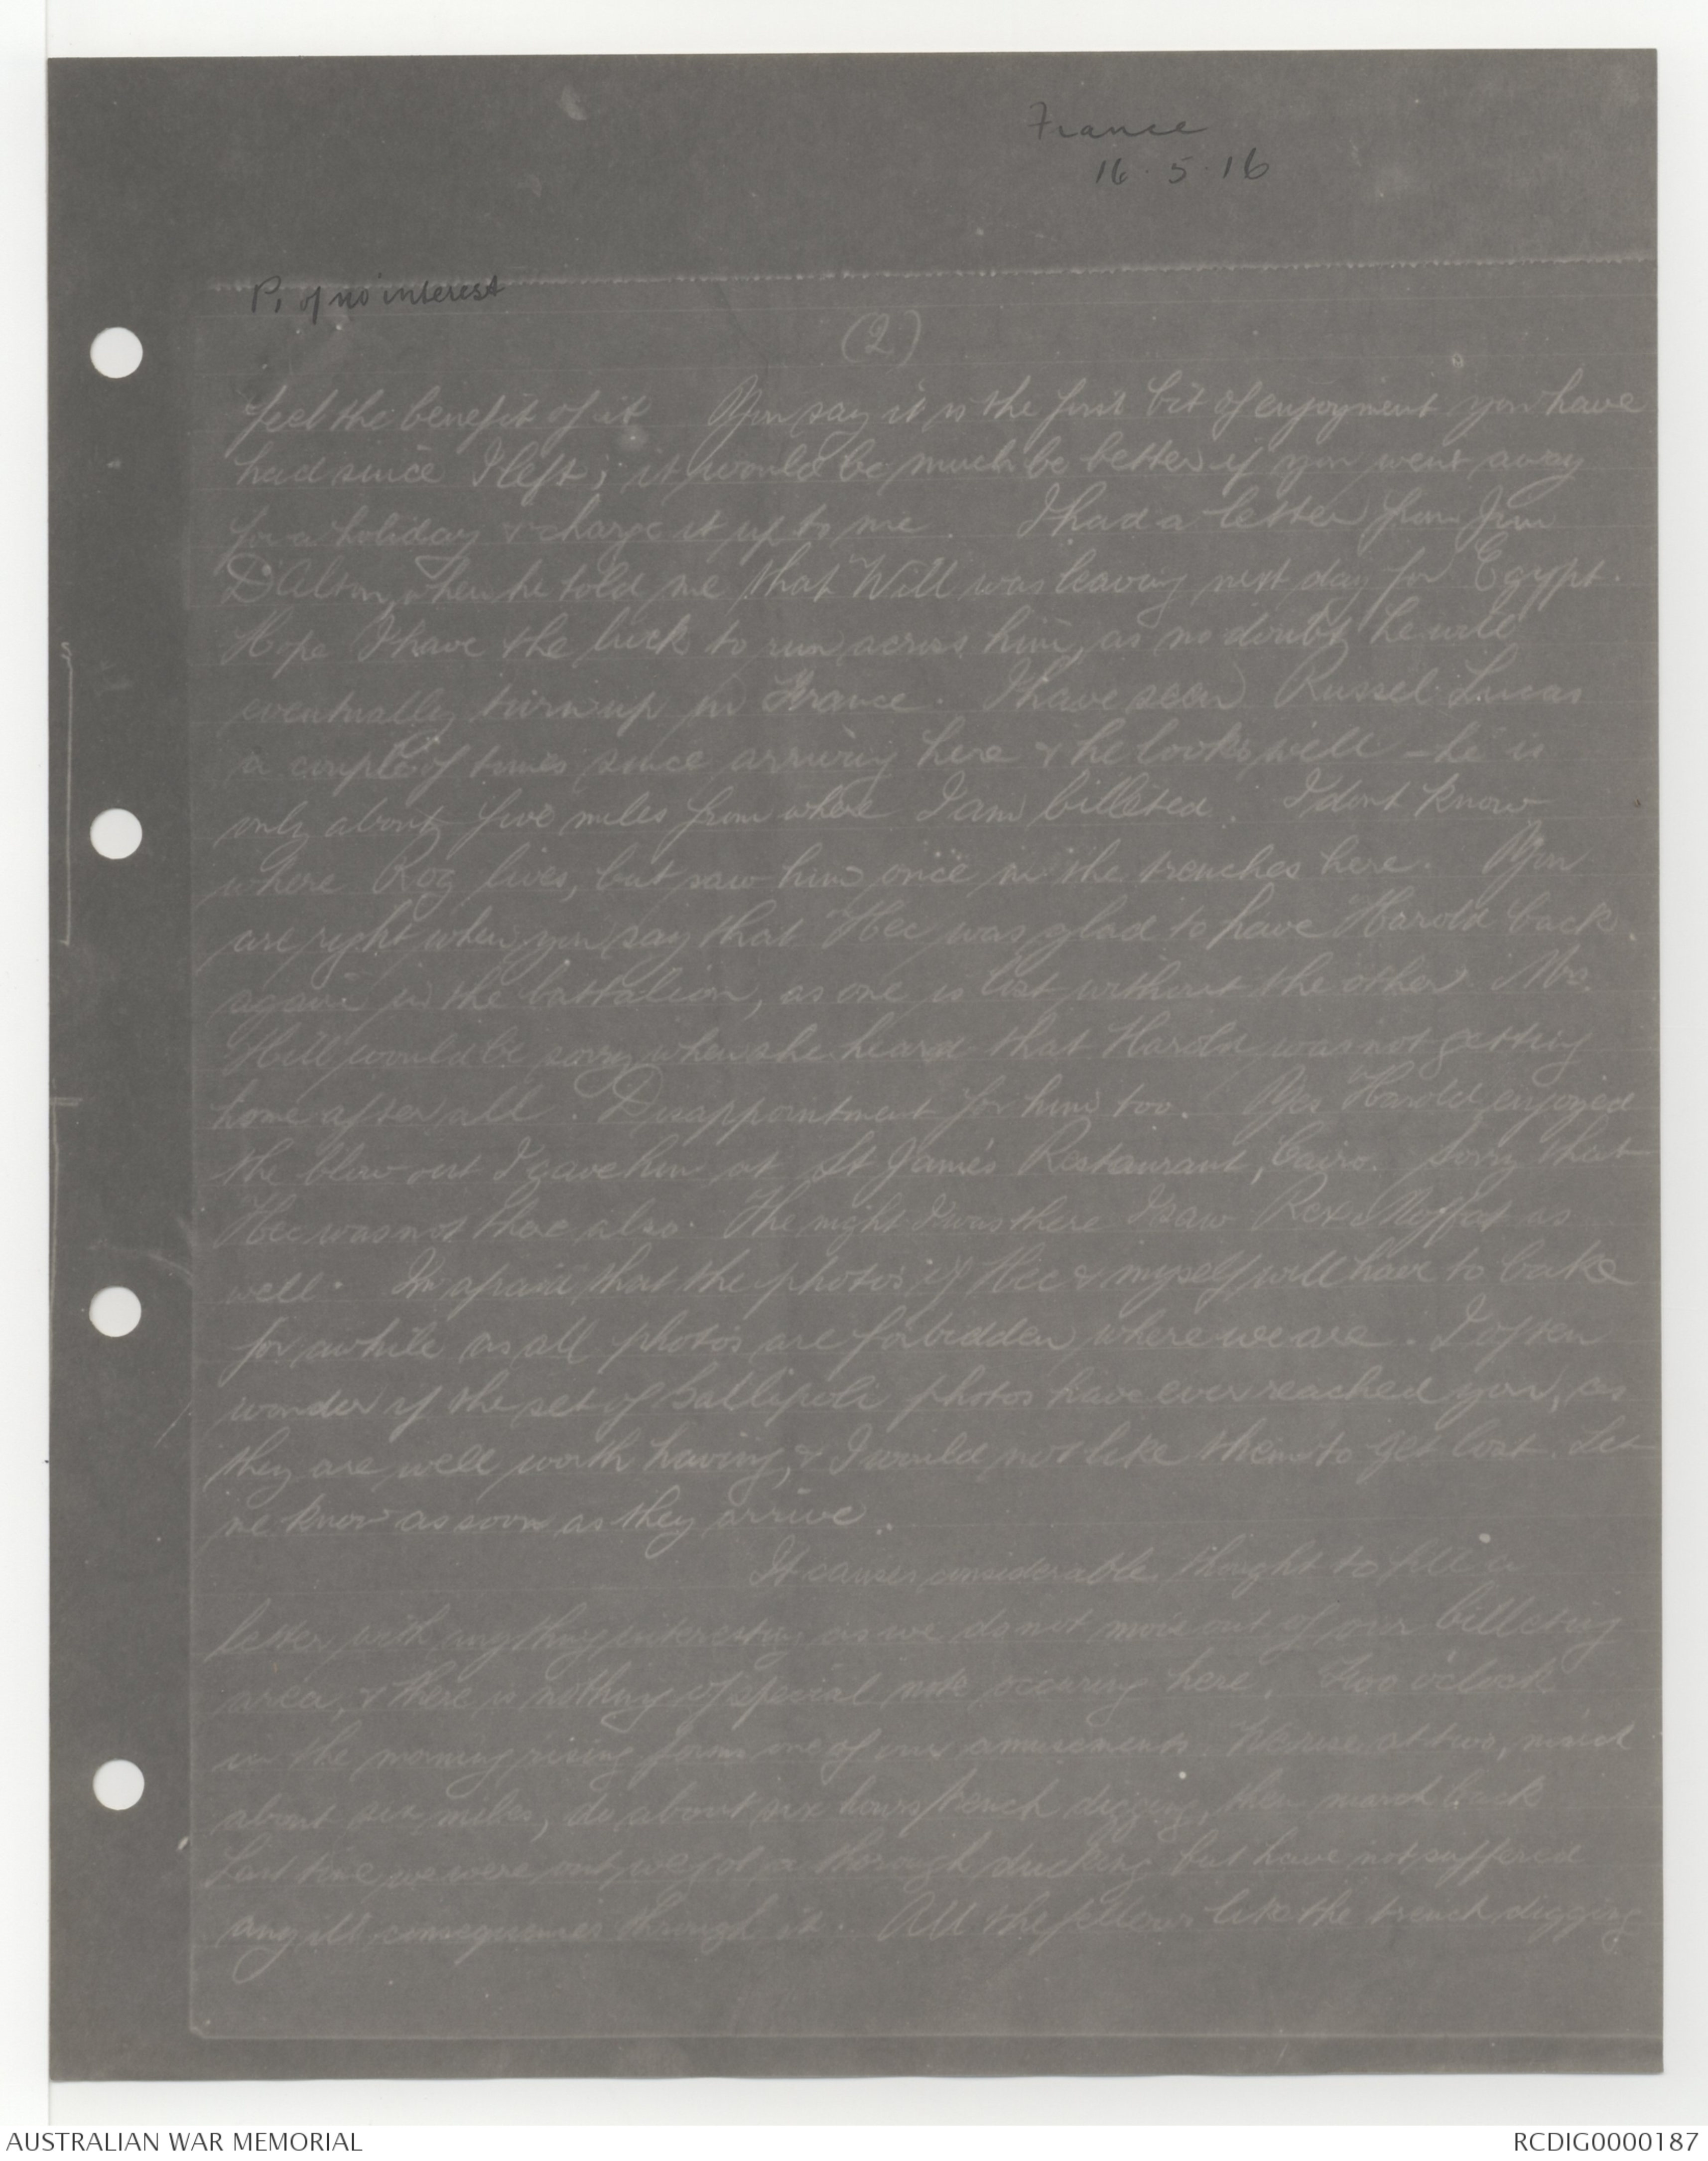 France
16.5.16
P1 of no interest
(2)
feel the benefit of it You say it is the first bit of enjoyment you have
had since I left; it would be much be better if you went away
for a holiday & charge it up to me. I had a letter from Jim
D'Alton, when he told me that Will was leaving next day for Egypt.
Hope I have the luck to run across him, as no doubt he will
eventually turn up in France. I have seen Russel Lucas
a couple of times since arriving here & he looks well - he is
only about five miles from where I am billeted. I dont know
where Roy lives, but saw him once in the trenches here. You
are right when you say that Hec was glad to have Harold back
again in the battalion, as one is lost without the other. Mrs.
Hill would be sorry when she heard that Harold was not getting
home after all. Disappointment for him too. Yes Harold enjoyed
the blow out I gave him at St James Restaurant, Cairo. Sorry that
Hec was not there also. The night I was there I saw Rex Moffat as
well. Im afraid that the photos of Hec & myself will have to
for awhile as all photos are forbidden where we are. I often
wonder if the set of Gallipoli photos have ever reached you, as
they are well worth having, & I would not like them to get lost. Let
me know as soon as they arrive.
It causes considerable thought to fill a
letter with anything interesting as we do not move out of our billeting
area, & there is nothing of special note occuring here. Two o'clock
in the morning rising forms one of our amusements. We rise at two,
about six miles, do about six hours trench digging, then march back
Last time we were out we got a thorough ducking but have not suffered
any ill consequences through it. All the fellows like the trench digging